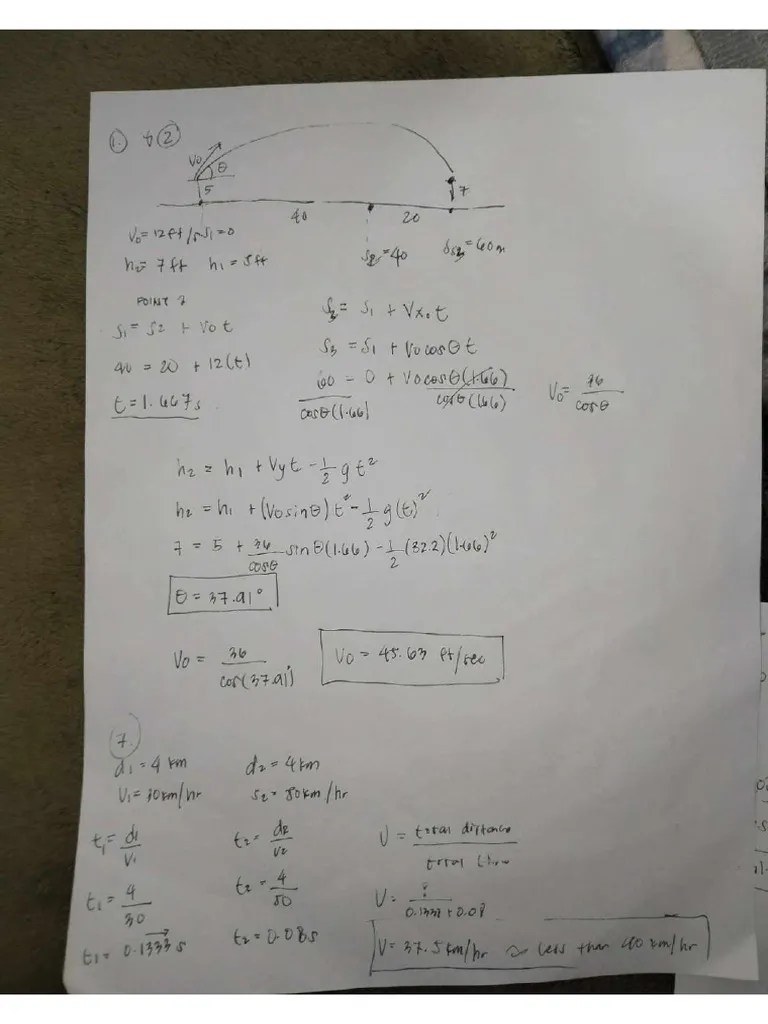 1. & 2
Vo
θ
5
7
40
20
V₀ = 12ft/s S₁=0
S₂=40
S₃=60m
h₂= 7ft h₁ = 5ft
POINT 2
S₁= S2 + Vo t
40 = 20 + 12(t)
t=1.667s
S₃= S₁ + Vx. t
S₃ = S₁ + Vo cosθ t
60 = 0 + Vo cosθ (1.66)
cosθ (1.66) cosθ (1.66)
Vo= 36
cosθ
h₂ = h₁ + Vyt - 1/2 gt²
h₂ = h₁ + (Vo sinθ) t - 1/2 g(t)²
7 = 5 + 36/cosθ sinθ (1.66) - 1/2 (32.2)(1.66)²
θ = 37.91°
Vo = 36
cos(37.91)
Vo = 45.63 ft/sec
7.
d₁ = 4 km d₂ = 4km
V₁= 30km/hr S₂= 50km/hr
t₁= d₁/V₁ t₂= d₂/V₂ V = total distance
total time
t₁= 4/30 t₂= 4/50 V= 8
0.1333+0.08
t₁= 0.1333 s t₂= 0.08s V= 37.5km/hr ≈ less than 40 km/hr